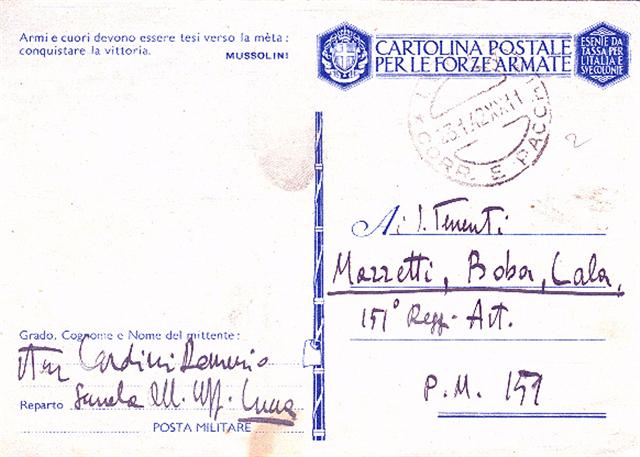 Armi e cuori devono essere tesi verso la mèta:
conquistare la vittoria.
MUSSOLINI
CARTOLINA POSTALE
PER LE FORZE ARMATE
ESENTE DA
TASSA PER
L'ITALIA E
SVE COLONIE
CORR. E PACCHI
2
Ai S. Tenenti
Mazzetti, Boba, Lala,
151° Regg. Art.
P.M. 151
Grado, Cognome e Nome del mittente:
Cardini
Reparto Scuola All. Uff. Lucca
POSTA MILITARE